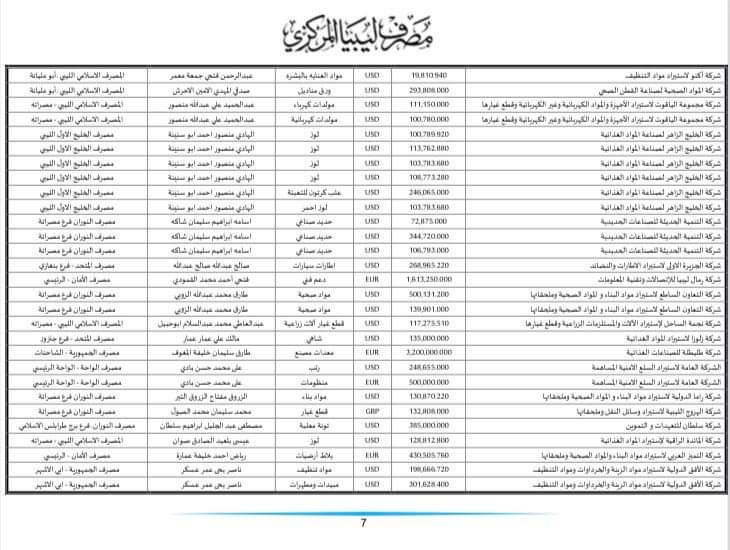 مصرف ليبيا المركزي
شركة أكنو لاستيراد مواد التنظيف 19,810.940 USD مواد العنايه بالبشره عبدالرحمن فتحي جمعة معمر المصرف الاسلامي الليبي-أبو مليانة
شركة المواد الصحية لصناعة القطن الصحي 293,808.000 USD ورق مناديل صدقي المهدي الامين الاحرش المصرف الاسلامي الليبي-أبو مليانة
شركة مجموعة الياقوت لاستيراد الأجهزة والمواد الكهربائية وغير الكهربائية وقطع غيارها 111,150.000 USD مولدات كهرباء عبدالحميد علي عبدالله منصور المصرف الاسلامي الليبي - مصراته
شركة مجموعة الياقوت لاستيراد الأجهزة والمواد الكهربائية وغير الكهربائية وقطع غيارها 100,780.000 USD مولدات كهربائية عبدالحميد علي عبدالله منصور المصرف الاسلامي الليبي - مصراته
شركة الخليج الزاهر لصناعة المواد الغذائية 100,789.920 USD لوز الهادي منصور احمد ابو سنينة مصرف الخليج الاول الليبي
شركة الخليج الزاهر لصناعة المواد الغذائية 113,762.880 USD لوز الهادي منصور احمد ابو سنينة مصرف الخليج الاول الليبي
شركة الخليج الزاهر لصناعة المواد الغذائية 103,783.680 USD لوز الهادي منصور احمد ابو سنينة مصرف الخليج الاول الليبي
شركة الخليج الزاهر لصناعة المواد الغذائية 108,773.280 USD لوز الهادي منصور احمد ابو سنينة مصرف الخليج الاول الليبي
شركة الخليج الزاهر لصناعة المواد الغذائية 246,065.000 USD علب كرتون للتعبئة الهادي منصور احمد ابو سنينة مصرف الخليج الاول الليبي
شركة الخليج الزاهر لصناعة المواد الغذائية 103,783.680 USD لوز احمر الهادي منصور احمد ابو سنينة مصرف الخليج الاول الليبي
شركة التنمية الحديثة للصناعات الحديدية 72,875.000 USD حديد صناعي اسامه ابراهيم سليمان شاكه مصرف النوران فرع مصراتة
شركة التنمية الحديثة للصناعات الحديدية 344,720.000 USD حديد صناعي اسامه ابراهيم سليمان شاكه مصرف النوران فرع مصراتة
شركة التنمية الحديثة للصناعات الحديدية 106,793.000 USD حديد صناعي اسامه ابراهيم سليمان شاكه مصرف النوران فرع مصراتة
شركة الجزيرة الاولى لاستيراد الاطارات والنضائد 268,965.220 USD اطارات سيارات صالح عبدالله صالح عبدالله مصرف المتحد - فرع بنغازي
شركة رمال ليبيا للإتصالات وتقنية المعلومات 1,613,250.000 EUR دعم فني فتحي أحمد محمد القمودي مصرف الأمان - الرئيسي
شركة التعاون الساطع لاستيراد مواد البناء و المواد الصحية وملحقاتها 500,131.200 USD مواد صحية طارق محمد عبدالله الزوبي مصرف النوران فرع مصراتة
شركة التعاون الساطع لاستيراد مواد البناء و المواد الصحية وملحقاتها 139,901.000 USD مواد صحية طارق محمد عبدالله الزوبي مصرف النوران فرع مصراتة
شركة نجمة الساحل لإستيراد الآلات والمستلزمات الزراعية وقطع غيارها 117,275.510 USD قطع غيار آلات زراعية عبدالعاطي محمد عبدالسلام ابوحبيل المصرف الاسلامي الليبي - مصراته
شركة زلوزا لاستيراد المواد الغذائية 135,000.000 USD شاهي مالك علي عمار عمار مصرف المتحد - فرع جنزور
شركة طليطلة للصناعات الغذائية 3,200,000.000 EUR معدات مصنع طارق سليمان خليفة المغوف مصرف الجمهورية - الشاحنات
الشركة العامة لاستيراد السلع الامنية المساهمة 248,655.000 USD رتب على محمد حسن بادي مصرف الواحة - الواحة الرئيسي
الشركة العامة لاستيراد السلع الامنية المساهمة 500,000.000 EUR منظومات على محمد حسن بادي مصرف الواحة - الواحة الرئيسي
شركة راما الدولية لاستيراد مواد البناء و المواد الصحية وملحقاتها 130,870.220 USD مواد بناء الزروق مفتاح الزروق التير مصرف النوران فرع مصراتة
شركة الهروج الليبية لاستيراد وسائل النقل وملحقاتها 132,808.000 GBP قطع غيار محمد سليمان محمد الصول مصرف النوران فرع مصراتة
شركة سلطان للتعهدات و التموين 385,000.000 USD تونة معلبة مصطفى عبد الجليل ابراهيم سلطان مصرف النوران فرع برج طرابلس الاسلامي
شركة المائدة الراقية لإستيراد المواد الغذائية 128,812.800 USD لوز عيسى بلعيد الصادق صوان المصرف الاسلامي الليبي - مصراته
شركة التميز العربي لاستيراد مواد البناء والمواد الصحية وملحقاتها 430,505.760 EUR بلاط أرضيات رياض احمد خليفة عمارة مصرف الأمان - الرئيسي
شركة الأفق الدولية لاستيراد مواد الزينة والخردوات ومواد التنظيف 198,666.720 USD مواد تنظيف ناصر يحى عمر عسكر مصرف الجمهورية - ابي الاشهر
شركة الأفق الدولية لاستيراد مواد الزينة والخردوات ومواد التنظيف 301,628.400 USD مبيدات ومطهرات ناصر يحى عمر عسكر مصرف الجمهورية - ابي الاشهر
7